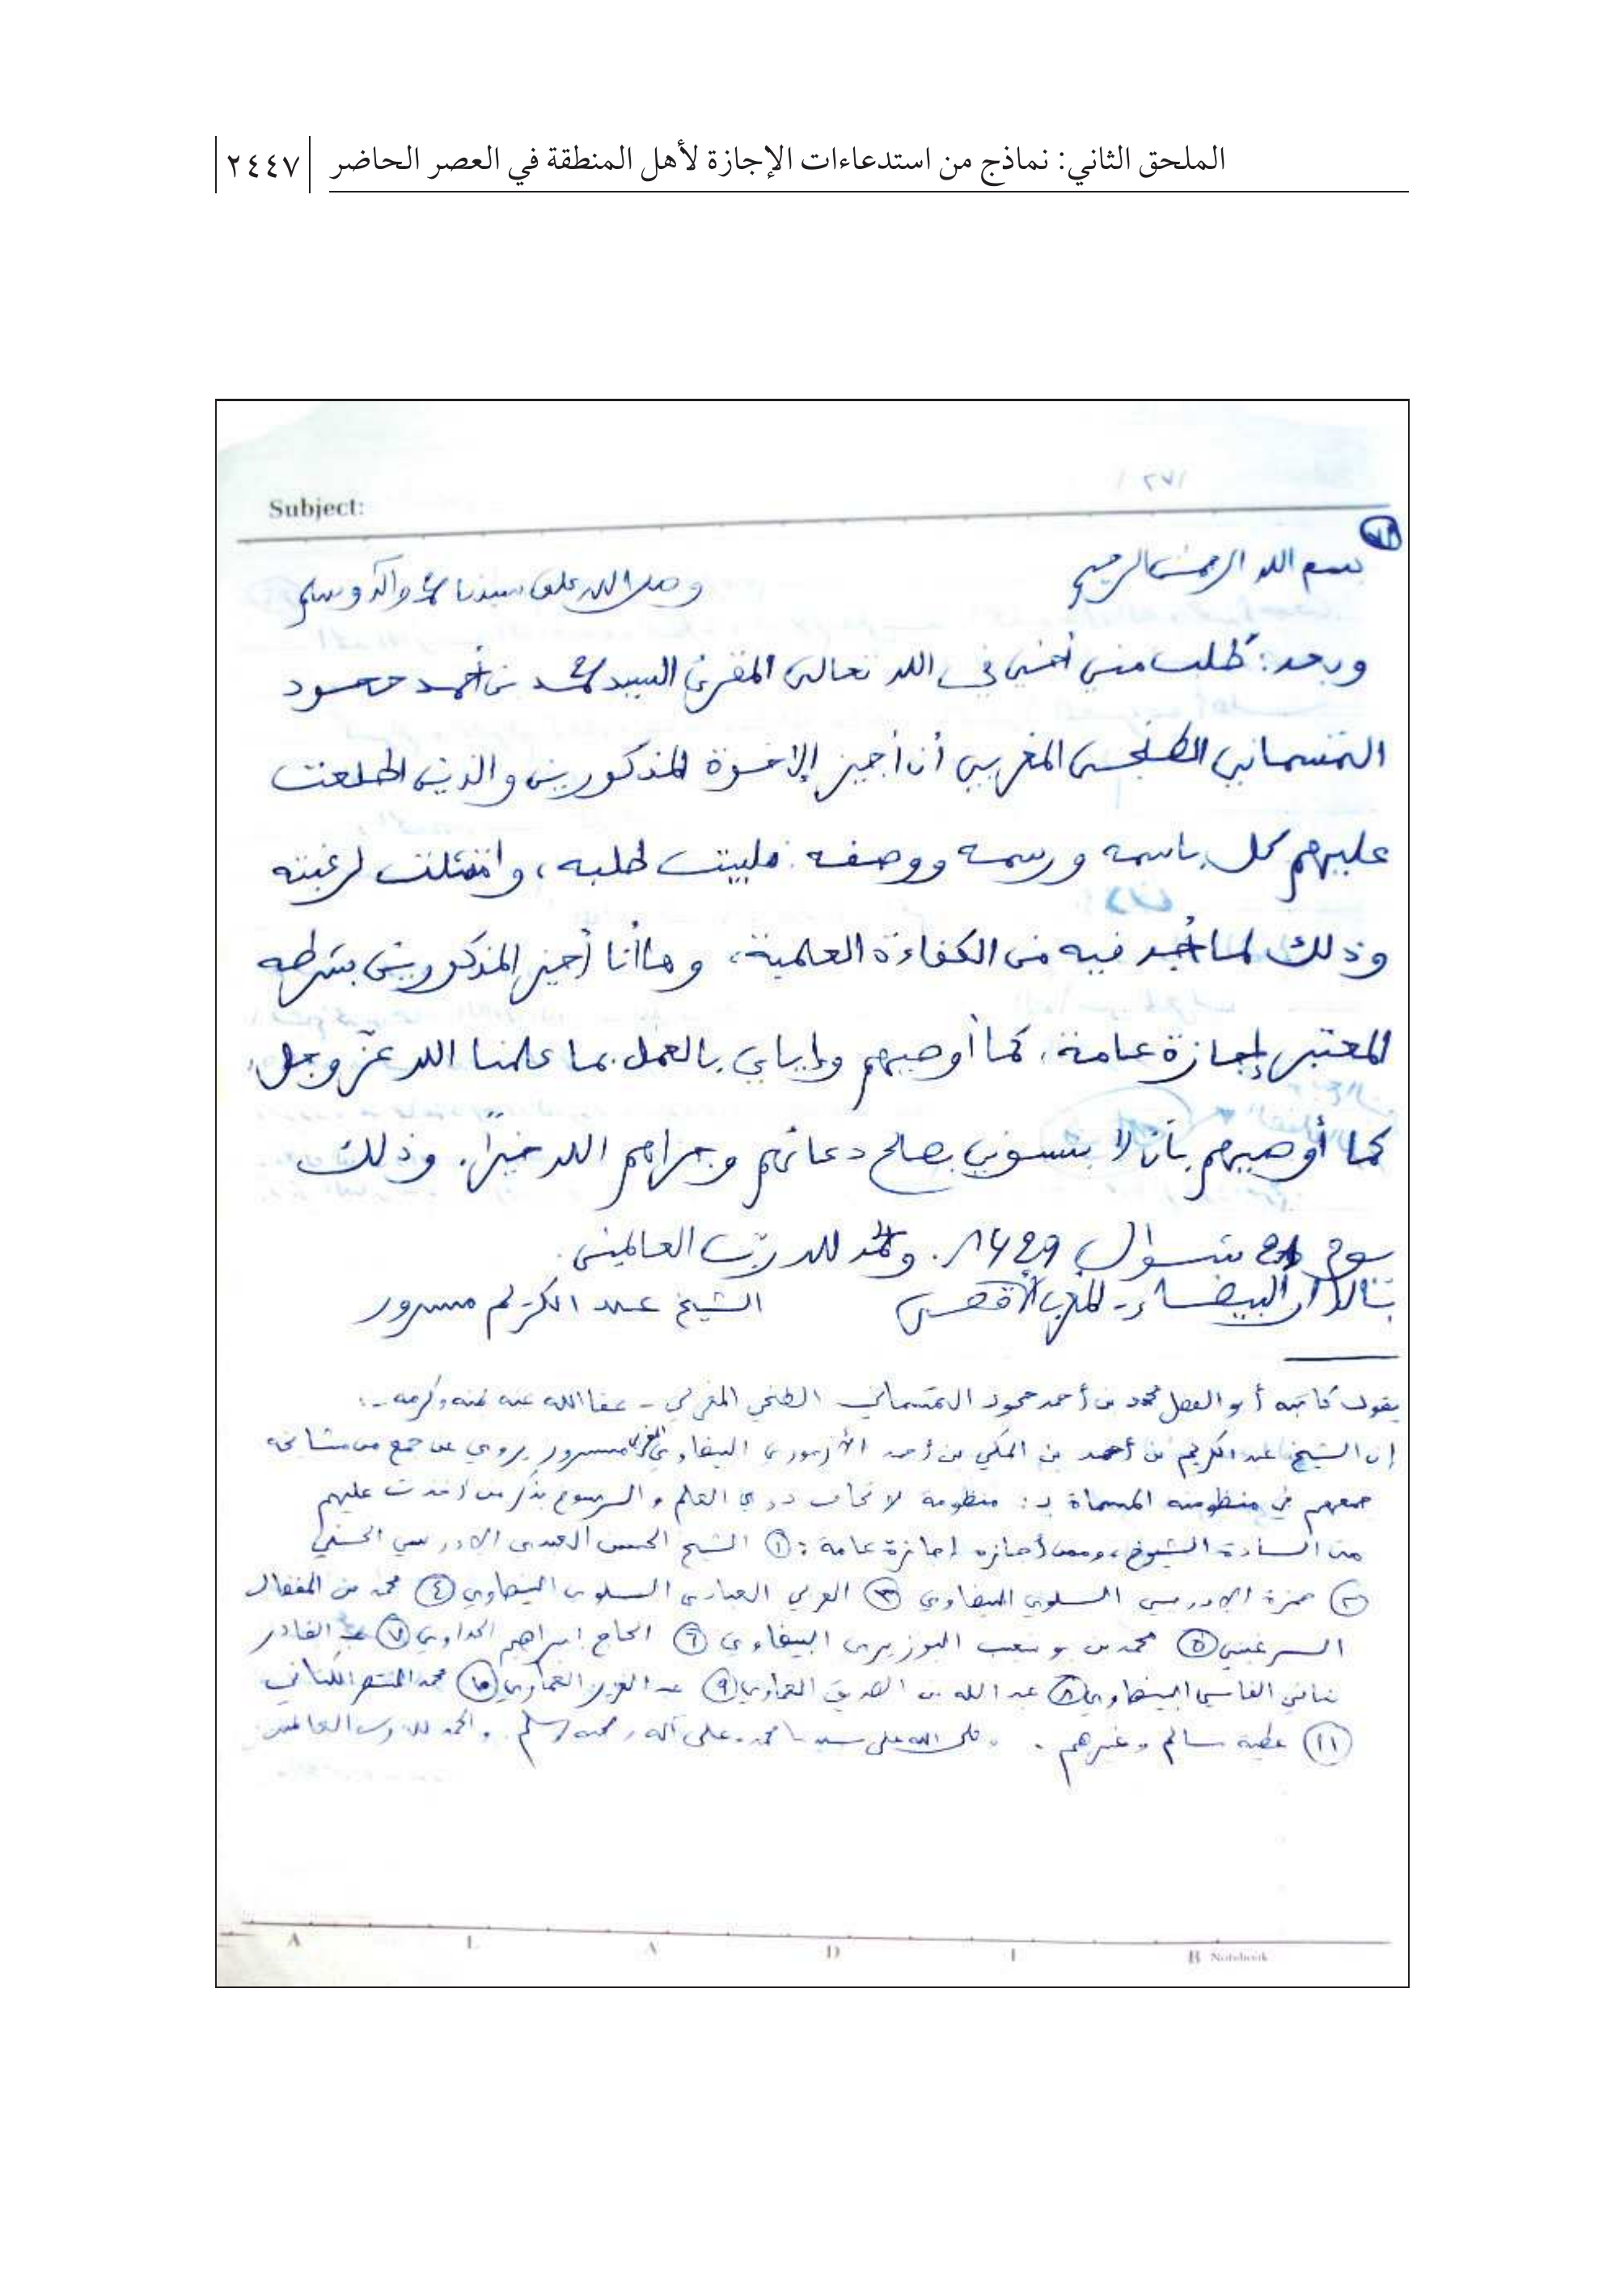 الملحق الثاني: نماذج من استدعاءات الإجازة لأهل المنطقة في العصر الحاضر ٢٤٤٧
١٢٧١
Subject:
بسم الله الرحمن الرحيم وصلى الله على سيدنا محمد وآله وسلم
وبعد: طلب مني أخي في الله تعالى المقرئ السيد محمد بن أحمد حمود
التمسماني الطنجي المغربي أن أجيز الإخوة المذكورين والذين اطلعت
عليهم كل باسمه ورسمه ووصفه. فلبيت طلبه، وامتثلت لرغبته
وذلك لما أجد فيه من الكفاءة العلمية، وها أنا أجيز المذكورين بشرطه
المعتبر إجازة عامة، كما أوصيهم وإياي بالعمل بما علمنا الله عز وجل،
كما أوصيهم بأن لا ينسوني بصالح دعائهم وجزاهم الله خيراً. وذلك
يوم 21 شوال 1429. والحمد لله رب العالمين.
بالدار البيضاء - المغرب الأقصى الشيخ عبد الكريم مسرور
يقول كاتبه أبو الفضل محمد بن أحمد حمود التمسماني الطنجي المغربي - عفا الله عنه بمنه وكرمه -:
إن الشيخ عبد الكريم بن أحمد بن المكي بن أحمد الأزموري البيضاوي المغربي مسرور يروي عن جمع من مشايخه
جمعهم في منظومته المسماة بـ: منظومة لإتحاف ذوي العلم والرسوخ بذكر من أخذت عليهم
من السادة الشيوخ، وممن أجازه إجازة عامة: ① الشيخ الحسن الإدريسي الحسني
② حمزة الإدريسي السلوي البيضاوي ③ العربي العياري السلوي البيضاوي ④ محمد بن المفضال
السرغيني ⑤ محمد بن بوشعيب البوزيري البيضاوي ⑥ الحاج إبراهيم الجداوي ⑦ عبد القادر
بناني الفاسي البيضاوي ⑧ عبد الله بن الصديق الغماري ⑨ عبد العزيز الغماري ⑩ محمد المنتصر الكتاني
⑪ عطية سالم وغيرهم. وصلى الله على سيدنا محمد وعلى آله وصحبه وسلم. والحمد لله رب العالمين
A L A D I B Notebook